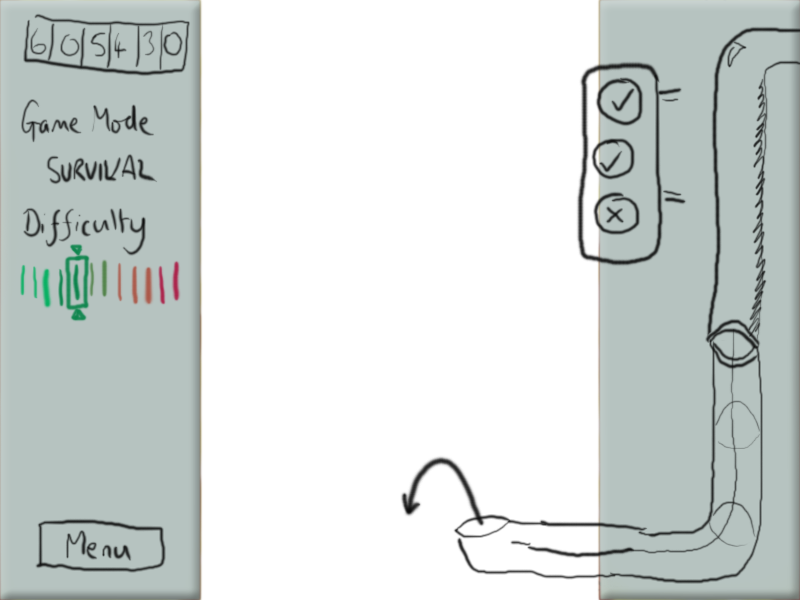 605430
Game Mode
SURVIVAL
Difficulty
Menu